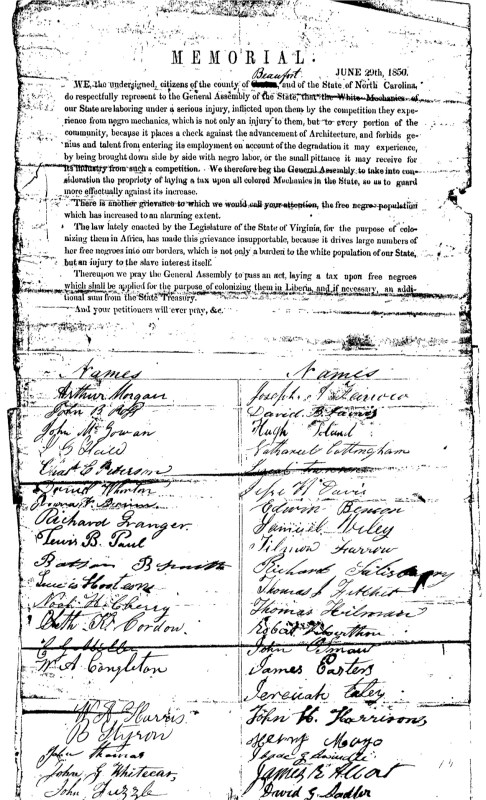 MEMORIAL.
JUNE 29th, 1850.
Beaufort
WE, the undersigned, citizens of the county of and of the State of North Carolina,
do respectfully represent to the General Assembly of the State, that the White Mechanics of
our State are laboring under a serious injury, inflicted upon them by the competition they expe-
rience from negro mechanics, which is not only an injury to them, but to every portion of the
community, because it places a check against the advancement of Architecture, and forbids ge-
nius and talent from entering its employment on account of the degradation it may experience,
by being brought down side by side with negro labor, or the small pittance it may receive for
its industry from such a competition. We therefore beg the General Assembly to take into con-
sideration the propriety of laying a tax upon all colored Mechanics in the State, so as to guard
more effectually against its increase.
There is another grievance to which we would call your attention, the free negro population
which has increased to an alarming extent.
The law lately enacted by the Legislature of the State of Virginia, for the purpose of colo-
nizing them in Africa, has made this grievance insupportable, because it drives large numbers of
her free negroes into our borders, which is not only a burden to the white population of our State,
but an injury to the slave interest itself.
Thereupon we pray the General Assembly to pass an act, laying a tax upon free negroes
which shall be applied for the purpose of colonizing them in Liberia, and if necessary, an addi-
tional sum from the State Treasury.
And your petitioners will ever pray, &c.
Names
Arthur Morgan
John B
John McGowan
Peterson
Wharton
Richard Granger
Lewis B. Paul
B
Hooten
Noah H. Cherry
Cordon
Miller
W A Congleton
W A Harris
B Styron
John Thomas
John G Whitecar
John Fuzzle
Names
Joseph Farrow
David B
Hugh Toland
Nathaniel Cottingham
Jesse W Davis
Edwin Benson
Samuel Wiley
Tilmon Farrow
Richard Salisbury
Thomas J
Thomas Hilman
John
James Easter
Jereniah
John H. Harrison
Henry Mayo
Isaac G
James E Albert
David G Sadler